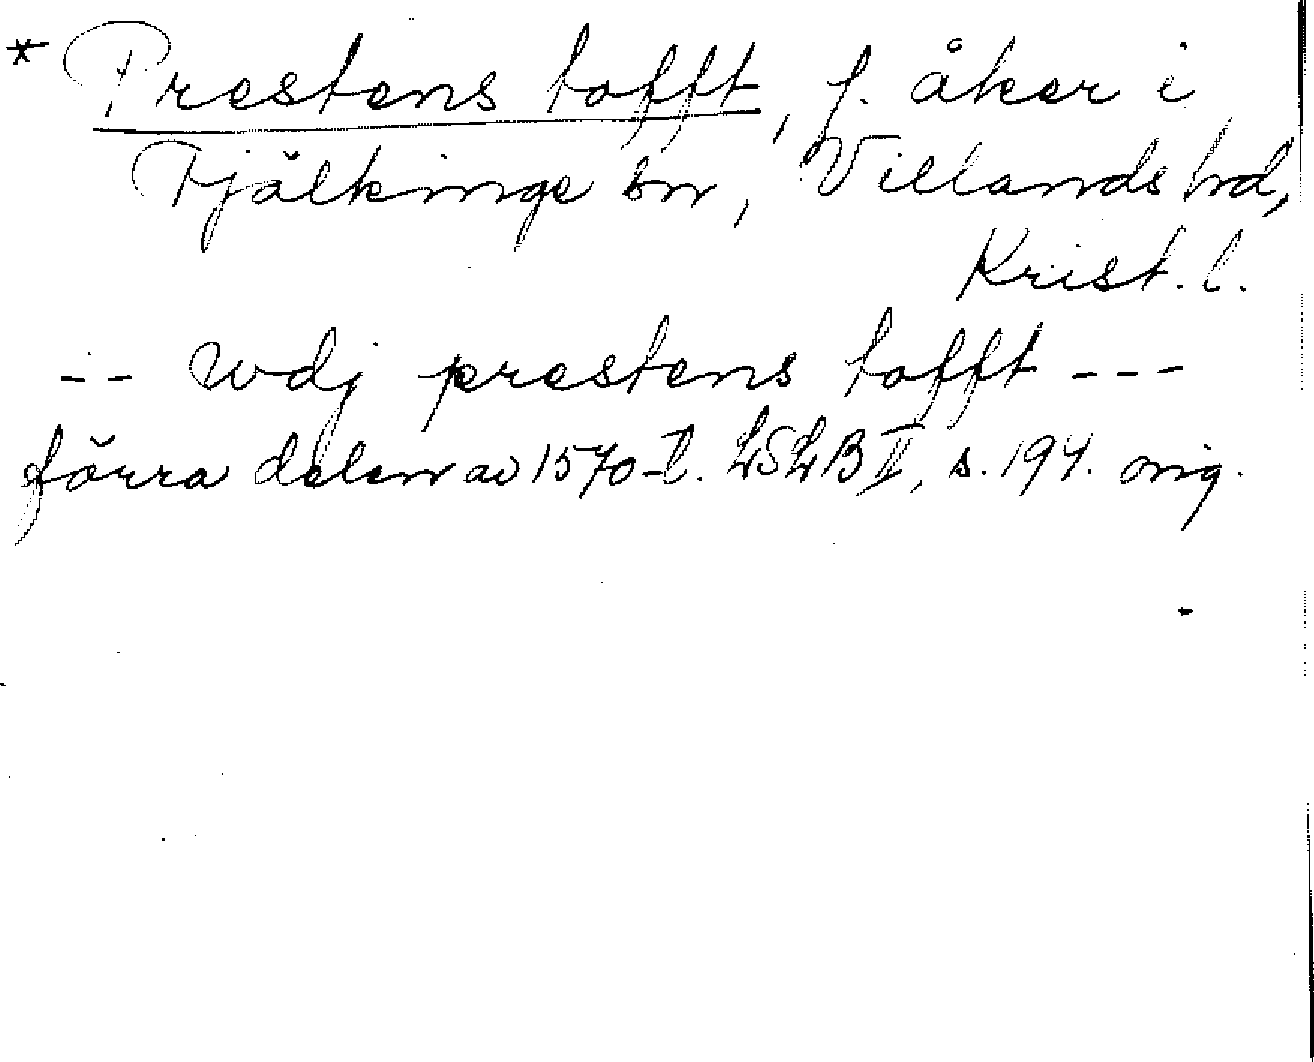 * Prestens tofft, f. åker i
Fjälkinge sn, Villands hd,
Krist. l.
-- wdj prestens tofft ---
förra delen av 1570-t. LSLB II, s. 194. orig.